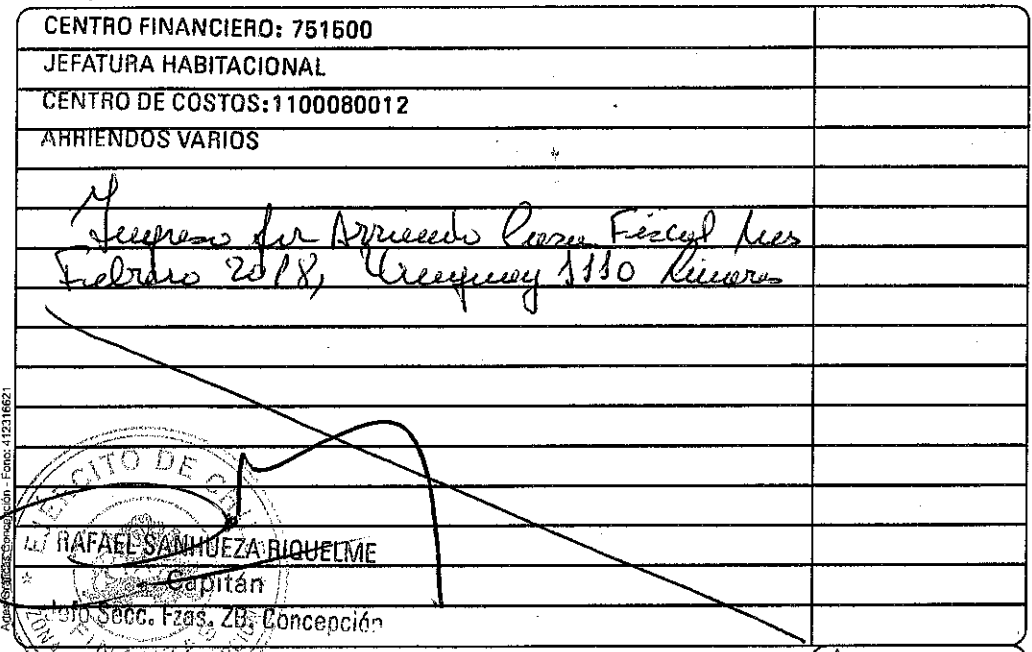 CENTRO FINANCIERO: 751500
JEFATURA HABITACIONAL
CENTRO DE COSTOS:1100080012
ARRIENDOS VARIOS
Ingreso por Arriendo Casa Fiscal Mes
Febrero 2018, Uruguay 1110 Linares
EJERCITO DE CHILE
RAFAEL SANHUEZA RIQUELME
Capitán
Jefe Secc. Fzas. ZB. Concepción
Artes Gráficas Concepción - Fono: 412316621